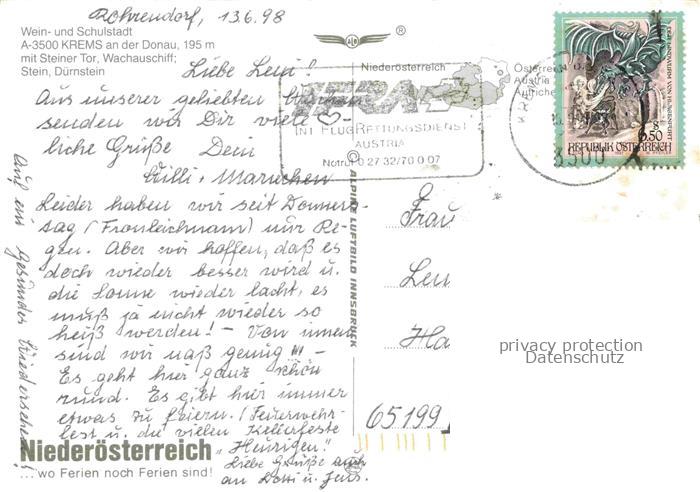 Rohrendorf, 13.6.98
Wein- und Schulstadt
A-3500 KREMS an der Donau, 195 m
mit Steiner Tor, Wachauschiff;
Stein, Dürnstein
Liebe Leni!
Aus unserer geliebten Wachau
senden wir Dir viele
liche Grüße Dein
Willi + Mariechen
Leider haben wir seit Donners-
tag (Fronleichnam) nur Re-
gen. Aber wir hoffen, daß es
doch wieder besser wird u.
die Sonne wieder lacht, es
muß ja nicht wieder so
heiß werden! - Von innen
sind wir naß genug!!! -
Es geht hier ganz schön
rund. Es gibt hier immer
etwas zu feiern! (Feuerwehr-
fest u. die vielen Kellerfeste
"Heurigen"
Liebe Grüße auch
an Dotti u. Jens.
Auf ein Gesundes Wiedersehen!
Niederösterreich
...wo Ferien noch Ferien sind!
AD
®
ALPINE LUFTBILD INNSBRUCK
Niederösterreich
INT. FLUGRETTUNGSDIENST
AUSTRIA
Notruf 0 27 32/70 0 07
Österreich
Austria
Autriche
3500
6.50
REPUBLIK ÖSTERREICH
Frau
65199
privacy protection
Datenschutz